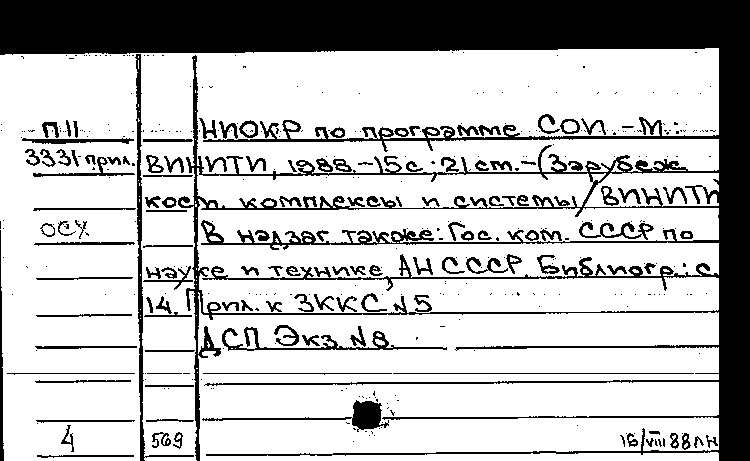 П11 НИОКР по программе СОИ. -М.:
3331 прил. ВИНИТИ, 1988.-15с.; 21 см. -(Зарубеж
косм. комплексы и системы/ВИНИТИ)
ОСХ В надзаг. также: Гос. ком. СССР по
науке и технике, АН СССР. Библиогр.: с.
14. Прил. к ЗККС N5
ДСП Экз. N8.
4 569 16/VIII 88 лн